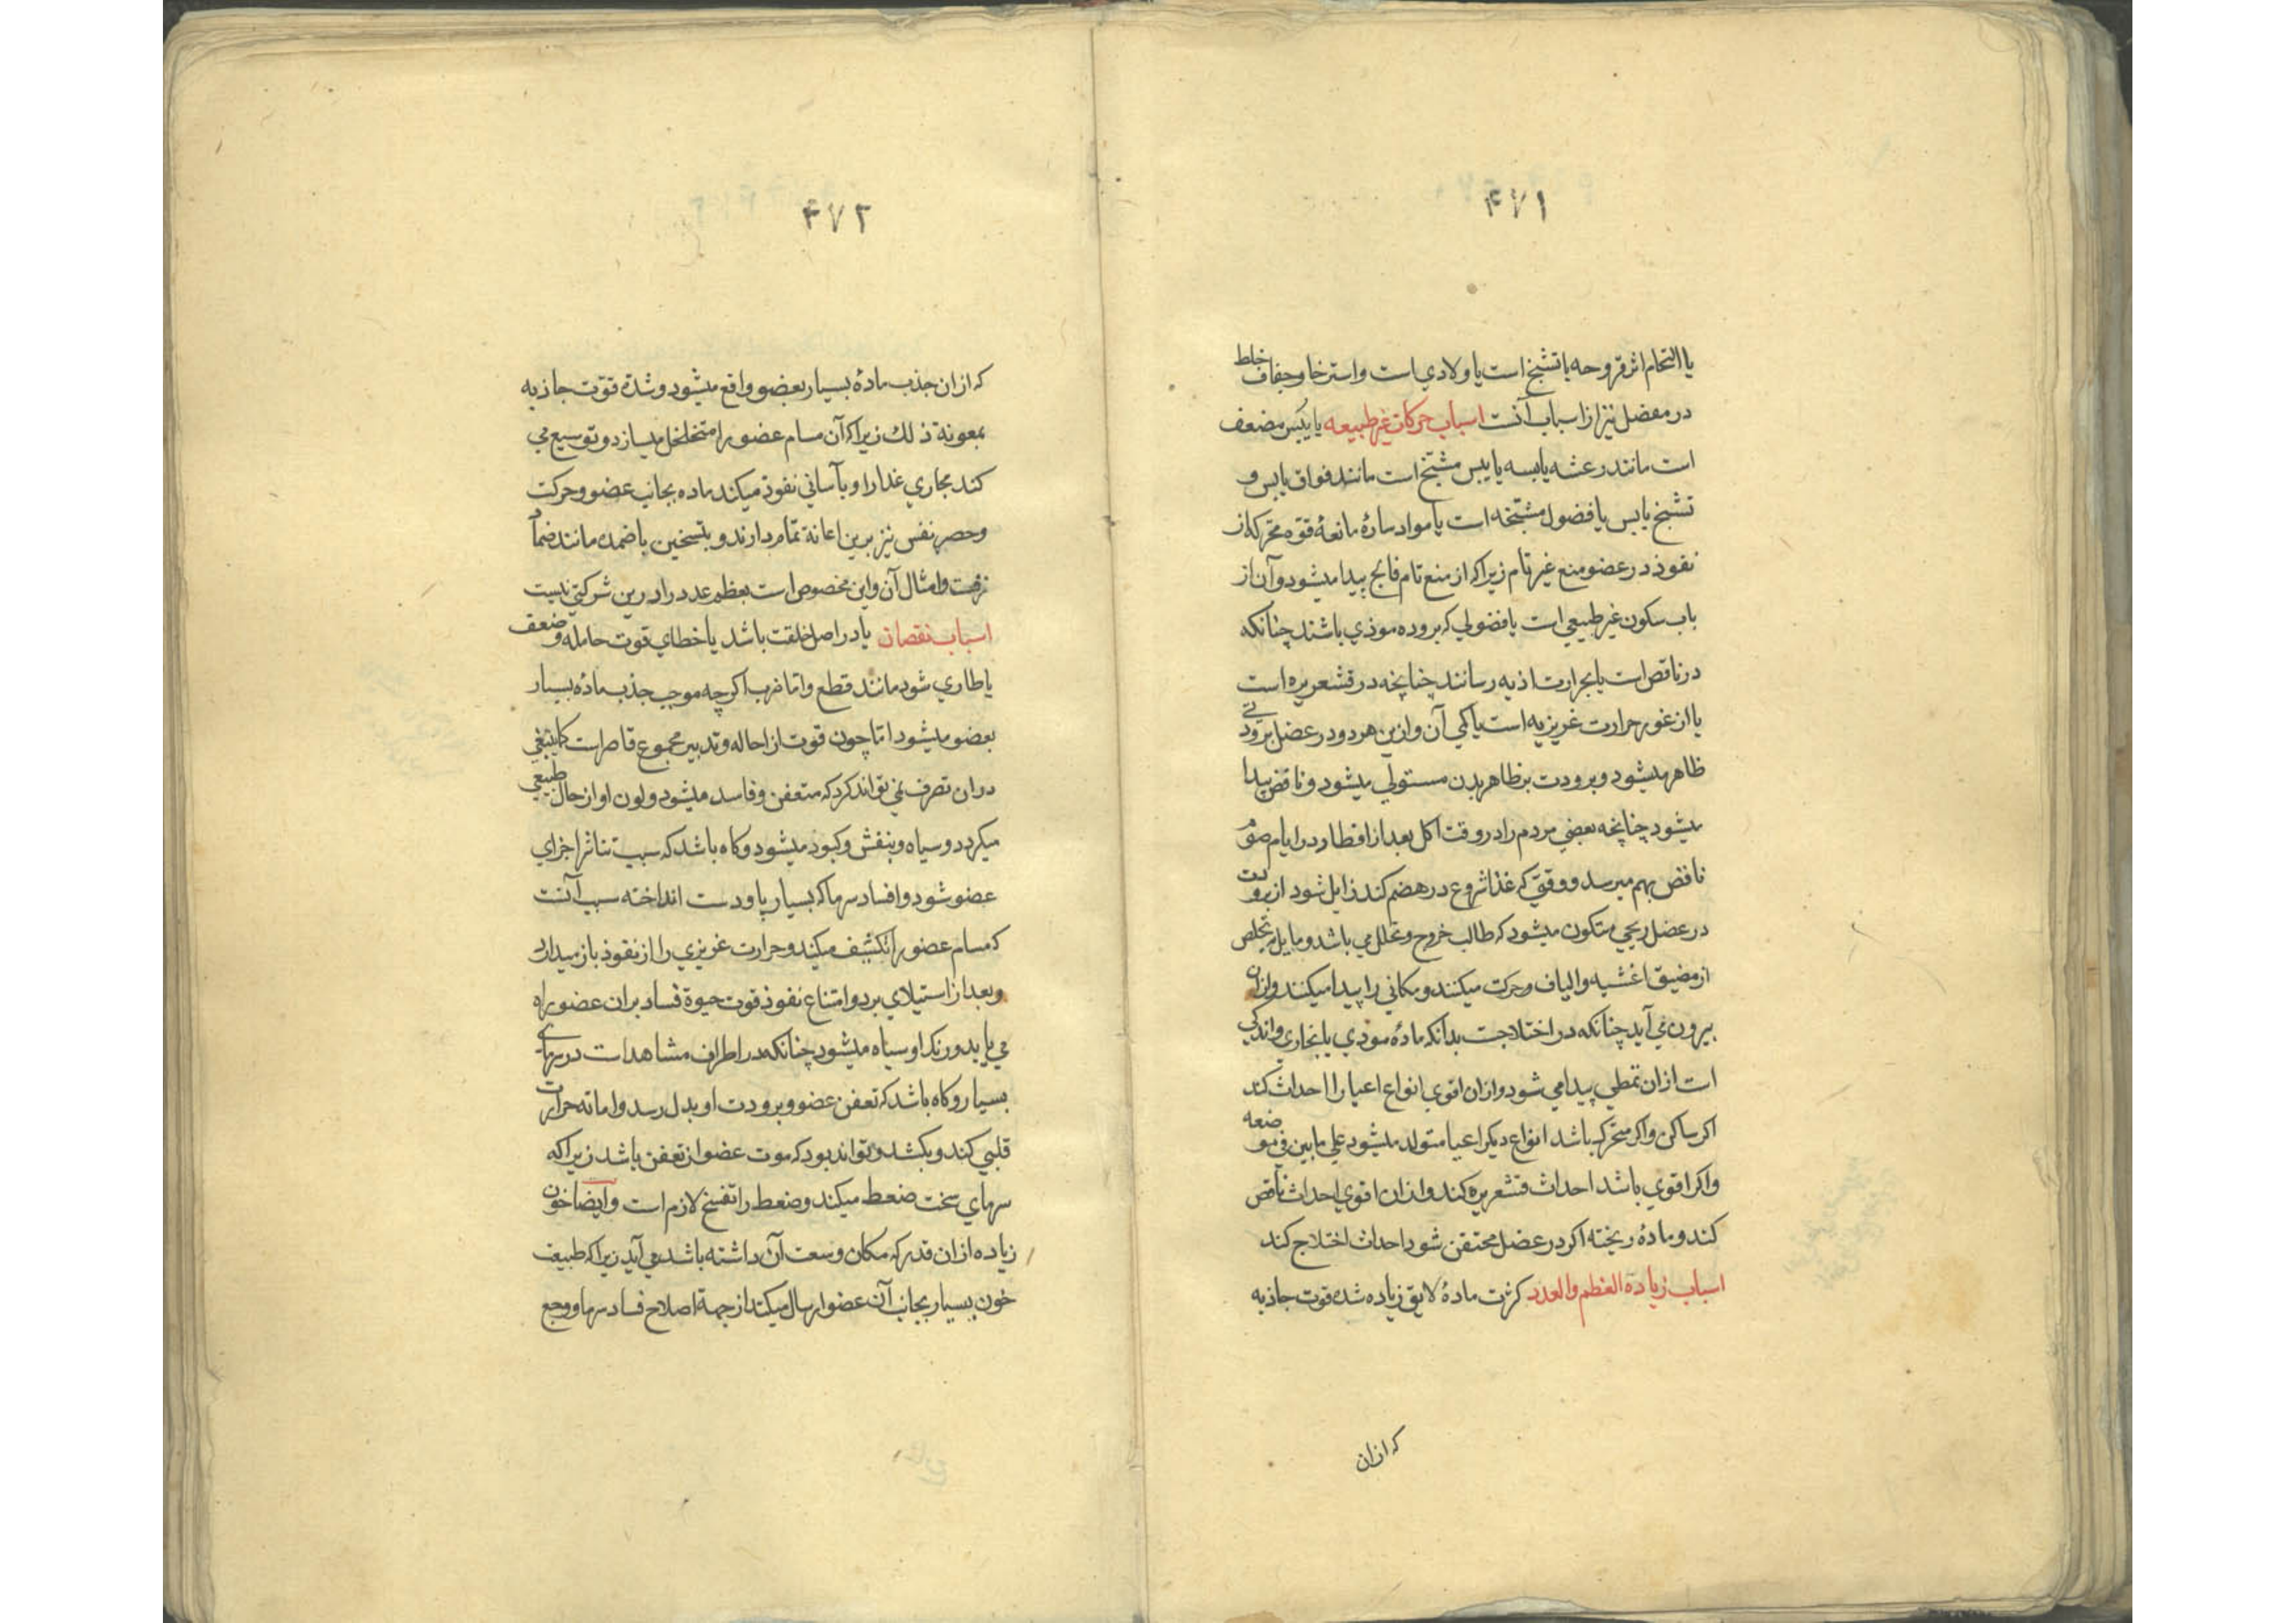 ۴۷۱
یا التحام اثر قروحه یا تشنج است یا ولادي است و استرخا و جفاف خلط
در مفصل نیز از اسباب آنست اسباب حرکات غیر طبیعه یا یبس مضعف
است مانند رعشه یابسه یا یبس مشنج است مانند فواق یابس و
تشنج یابس یا فضول مشنجه است یا مواد سادهٔ مانعهٔ قوه محرکه از
نفوذ در عضو منع غیر تام زیرا که از منع تام فالج پیدا میشود و آن از
باب سکون غیر طبیعي است یا فضولي که بروده موذي باشند چنانکه
در نافض است یا بحرارت اذیه رسانند چنانچه در قشعریره است
یا از غور حرارت غریزیه است یا کمي آن و ازین هر دو در عضل برودتے
ظاهر میشود و برودت بر ظاهر بدن مستولي میشود و نافض پیدا
میشود چنانچه بعضي مردم را در وقت اکل بعد از افطار در ایام صوم
نافض بهم میرسد و وقتي که غذا شروع در هضم کند زایل شود از برودت
در عضل ریحي متکون میشود که طالب خروج و تحلل مي باشد و مایل بتخلص
از مضیق اغشیه و الیاف و حرکت میکنند و مکاني را پیدا میکنند و ازان
بیرون مي آید چنانکه در اختلاجت بدانکه مادهٔ موذي یا بخاري و اندکي
است ازان تمطي پیدا مي شود و ازان اقوي انواع اعیا را احداث کند
اکر ساکن و اکر متحرک باشد انواع دیکر اعیا متولد میشود علي ما بین في موضعه
و اکر اقوي باشد احداث قشعریره کند و ازان اقوي احداث نافض
کند و مادهٔ ریخته اکر در عضل محتقن شود احداث اختلاج کند
اسباب زیادة العظم والعدد کثرت مادهٔ لایق زیاده شده قوت جاذبه
که ازان
۴۷۲
که ازان جذب مادهٔ بسیار بعضو واقع میشود و شدة قوت جاذبه
بمعونة ذلك زیرا که آن مسام عضو را متخلخل میسازد و توسیع مي
کند مجاري غذا را و بآساني نفوذ میکند ماده بجانب عضو و حرکت
و حصر نفس نیز برین اعانة تمام دارند و بتسخین باضمده مانند ضماد
زفت و امثال آن و این مخصوص است بعظم عدد را درین شرکتي نیست
اسباب نقصان یا در اصل خلقت باشد یا خطاي قوت حامله و ضعف
یا طاري شود مانند قطع و اما ضرب اکرچه موجب جذب مادهٔ بسیار
بعضو میشود اما چون قوت از احاله و تدبیر مجموع قاصر است کما ینبغي
دران تصرف نمي تواند کرد که متعفن و فاسد میشود و لون او از حال طبیعي
میکردد و سیاه و بنفش و کبود میشود و کاه باشد که سبب تناثر اجزاي
عضو شود و افساد سرما که بسیار پا و دست انداخته سبب آنست
که مسام عضو را تکثیف میکند و حرارت غریزي را از نفوذ باز میدارد
و بعد از استیلاي برد و امتناع نفوذ قوت حیوة فساد بران عضو راه
مي یابد و رنک او سیاه میشود چنانکه در اطراف مشاهدات در سرماے
بسیار و کاه باشد که تعفن عضو و برودت او بدل رسد و اماته حرارت
قلبي کند و بکشد و تواند بود که موت عضو از تعفن باشد زیرا که
سرماي سخت ضعط میکند و ضعط را تفسخ لازم است و ایضا خون
زیاده ازان قدر که مکان وسعت آن داشته باشد مي آید زیرا که طبیعت
خون بسیار بجانب آن عضو ارسال میکند از جهة اصلاح فساد سرما و وجع